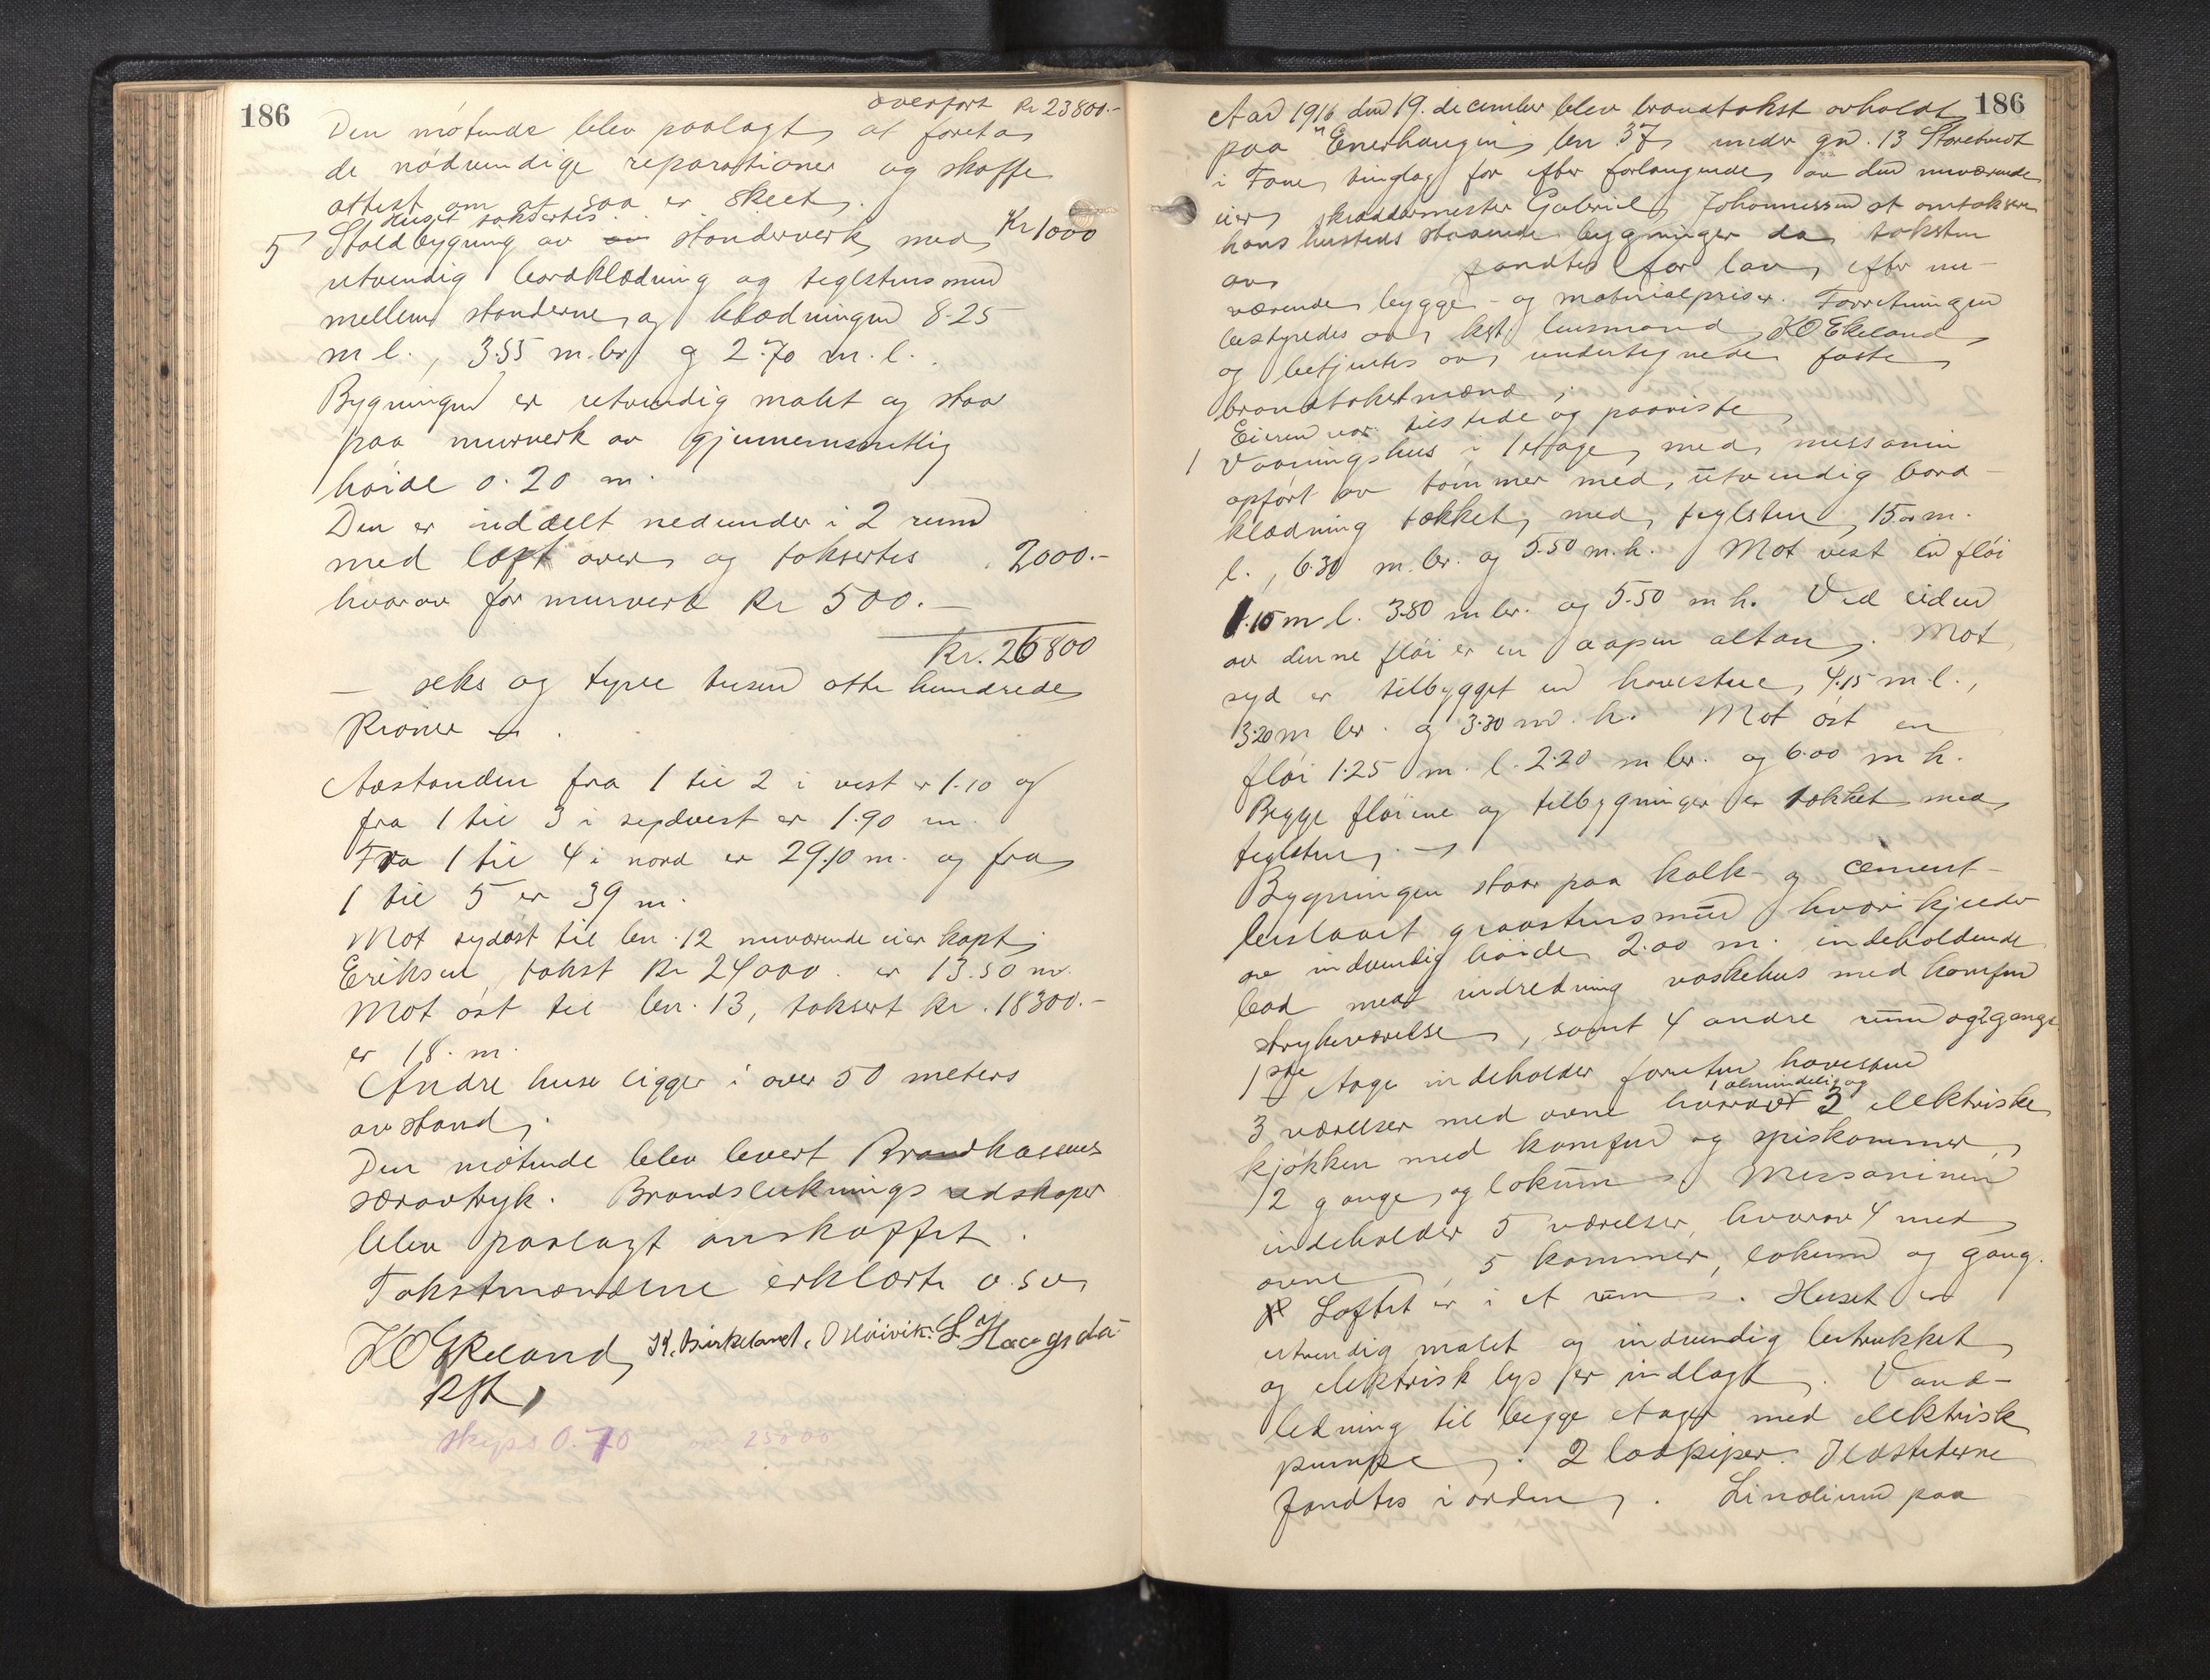 186
overført Kr 23800.-
Den møtende blev paalagt at foreta
de nødvendige reparationer og skaffe
attest om at saa er skeet.
Huset takseertes Kr 1000
5 Staldbygning av standerverk med
utvendig bordklædning og teglstensmur
mellem standerne og klædningen 8.25
m l., 3.55 m.br. og 2.70 m. l.
Bygningen er utvendig malet og staar
paa murverk av gjennemsnittlig
høide 0.20 m.
Den er inddelt nedunder i 2 rum
med loft over og takseertes 2000.-
hvorav for murverk Kr 500.-
Kr. 26800
- seks og tyve tusen otte hundrede
Kroner -.
Avstanden fra 1 til 2 i vest er 1.10 og
fra 1 til 3 i sydvest er 1.90 m.
Fra 1 til 4 i nord er 29.10 m. og fra
1 til 5 er 39 m.
Mot sydøst til br. 12 nuværende eier kapt.
Eriksen, takst Kr 24000. er 13.50 m.
Mot øst til br. 13, taksert kr. 18300.-
er 18. m.
Andre huse ligger i over 50 meters
avstand.
Den møtende blev levert Brandkassens
særavtryk. Brandslukningsredskaper
blev paalagt anskaffet.
Takstmændene erklærte o.s.v.
K O Ekeland, K. Birkeland, O Høivik. L Haugsda
Kst.
Skyps 0.70 25000
186
Aar 1916 den 19. december blev brandtakst avholdt
paa "Enerhaugen" br. 37 under gn. 13 Storetvedt
i Fane tinglag for efter forlangende av den nuværende
eier, skræddermester Gabriel Johannessen at omtaksere
hans husteds staaende bygninger da taksten
av fandtes for lav efter nu-
værende bygge- og materialpriser. Forretningen
bestyredes av kst. lensmand K O Ekeland
og betjentes av undertegnede faste
brandtakstmænd.
Eieren var tilstede og paaviste
1 Vaaningshus i 1 etage med messanin
opført av tømmer med utvendig bord-
klædning tækket med teglsten, 15.00 m.
l., 6.30 m.br. og 5.50 m.h. Mot vest en fløi
1.15 m l. 3.80 m br. og 5.50 m h. Ved siden
av denne fløi er en aapen altan. Mot
syd er tilbygget en havestue, 4.15 m.l.,
3.20 m br. og 3.30 m. h. Mot øst en
fløi 1.25 m. l. 2.20 m br. og 6.00 m h.
Begge fløiene og tilbygninger er tækket med
teglsten. -
Bygningen staar paa kalk- og cement-
beslaaet graastensmur hvori kjelder
av indvendig høide 2.00 m. indeholdende
bad med indredning vaskehus med komfur
strykeværelse, samt 4 andre rum og 2 gange.
1ste Etage indeholder forretur havestue
3 værelser med ovne hvorav 1 almindelig og 2 elektriske
kjøkken med komfur og spiskammer,
2 gange, og lokum. Messaninen
indeholder 5 værelser, hvorav 4 med
ovne, 5 kammer, lokum og gang.
Loftet er i et rum. Huset er
utvendig malet og indvendig betrukket
og elektrisk lys er indlagt. Vand-
ledning til begge etager med elektrisk
pumpe. 2 løspiper. Ildstederne
fandtes i orden. Linolium paa